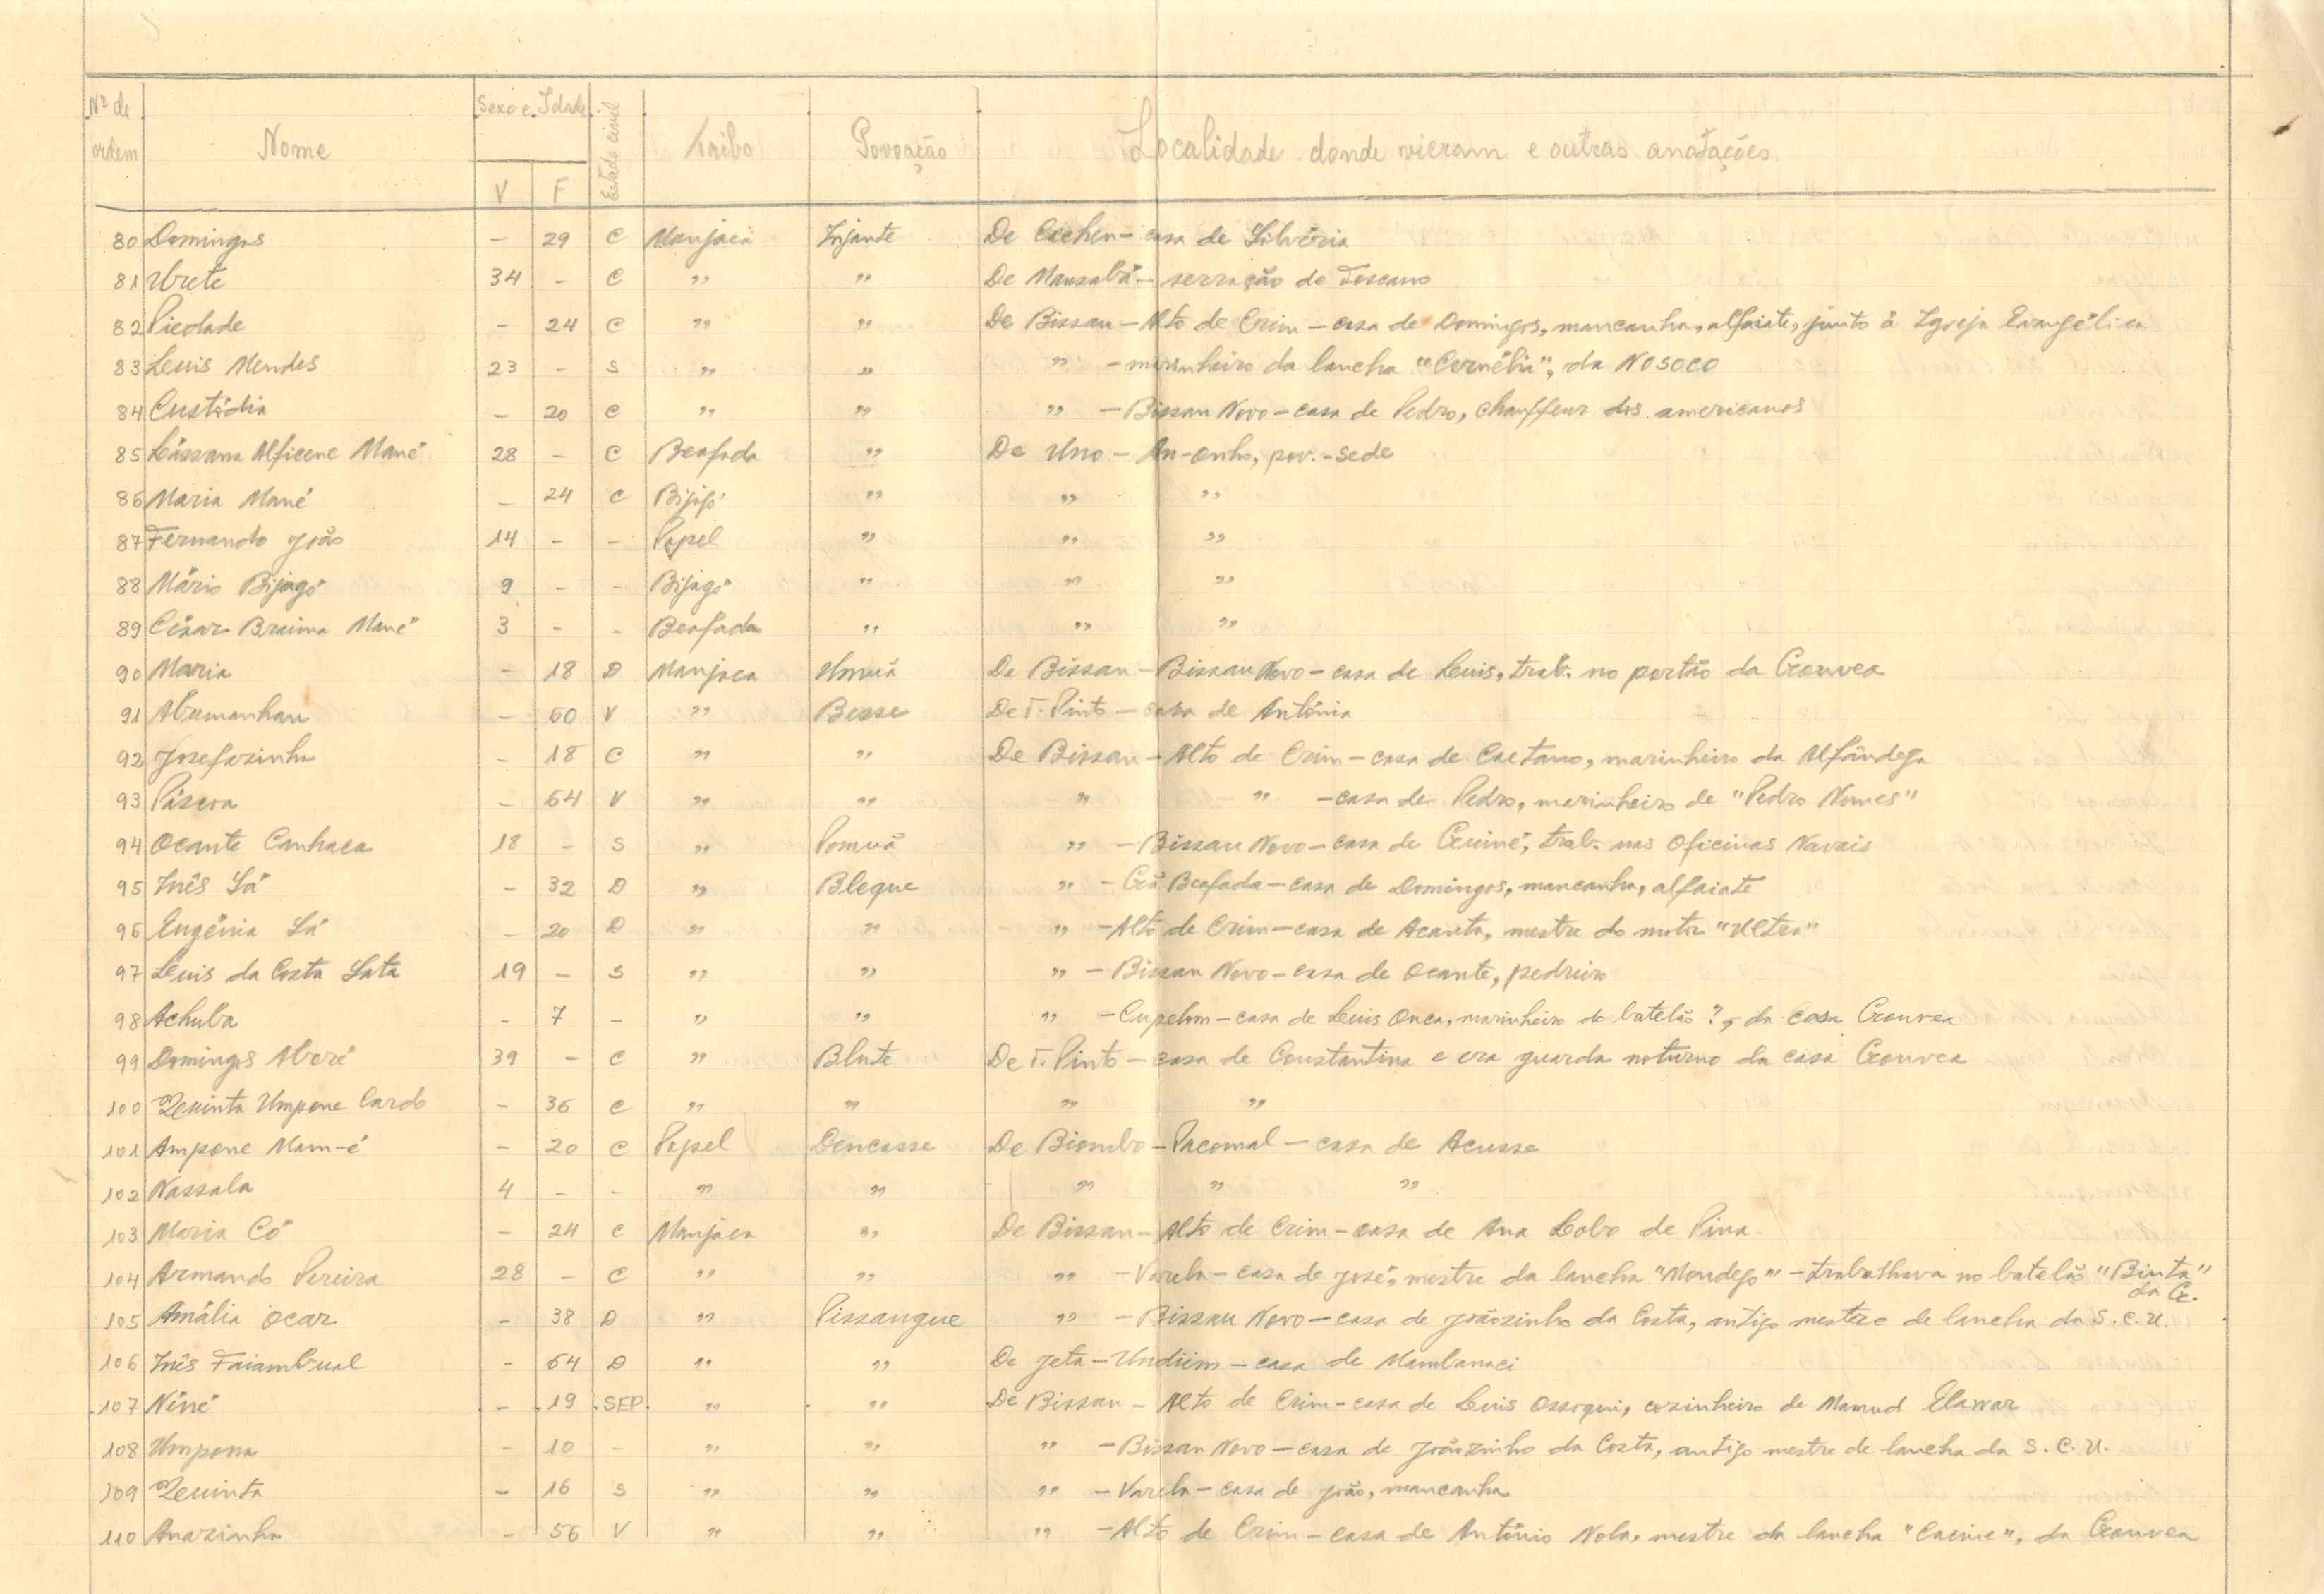 Nº de ordem Nome Sexo e Idade V F Estado civil Tribo Povoação Localidade donde vieram e outras anotações
80 Domingas - 29 C Manjaca Injante De Cacheu - casa de Silvéria
81 Ubrete 34 - C " " De Mansabá - serração de Toscano
82 Piedade - 24 C " " De Bissau - Alto de Crim - casa de Domingos, mancanha, alfaiate, junto à Igreja Evangélica
83 Luis Mendes 23 - S " " " - marinheiro da lancha "Cornélia", da NOSOCO
84 Custódia - 20 C " " " - Bissau Novo - casa de Pedro, chauffeur dos americanos
85 Lássana Alficene Mané 28 - C Beafada " De Uno - An-onho, pov.-sede
86 Maria Mané - 24 C Bijagó " " "
87 Fernando João 14 - - Papel " " "
88 Mário Bijagó 9 - - Bijagó " " "
89 César Braima Mané 3 - - Beafada " " "
90 Maria - 18 D Manjaca Umuá De Bissau - Bissau Novo - casa de Luis, trab. no portão da Gouvea
91 Abumanhau - 60 V " Besse De T. Pinto - casa de Antónia
92 Josefazinha - 18 C " " De Bissau - Alto de Crim - casa de Caetano, marinheiro da Alfândega
93 Páscoa - 64 V " " " " - casa de Pedro, marinheiro de "Pedro Nunes"
94 Ocante Canhaca 18 - S " Pomuá " - Bissau Novo - casa de Guiné, trab. nas Oficinas Navais
95 Inês Sá - 32 D " Bleque " - Crã Beafada - casa de Domingos, mancanha, alfaiate
96 Eugénia Sá - 20 D " " " - Alto de Crim - casa de Acanta, mestre do motor "Ultra"
97 Luis da Costa Sata 19 - S " " " - Bissau Novo - casa de Ocante, pedreiro
98 Achuba - 7 - " " " - Cupelom - casa de Luis Onca, marinheiro do batelão ?, da casa Gouvea
99 Domingos Aboré 39 - C " Blute De T. Pinto - casa de Constantina e era guarda noturno da casa Gouvea
100 Quinta Umpane Cardo - 36 C " " " "
101 Ampone Mam-é - 20 C Papel Dencasse De Biombo - Pacomal - casa de Acusse
102 Nassala 4 - - " " " " "
103 Maria Có - 24 C Manjaca " De Bissau - Alto de Crim - casa de Ana Lobo de Pina
104 Armando Pereira 28 - C " " " - Varela - casa de José, mestre da lancha "Mondego" - trabalhava no batelão "Binta" da G.
105 Amália Ocar - 38 D " Pissangue " - Bissau Novo - casa de Joãozinho da Costa, antigo mestre de lancha da S.C.U.
106 Inês Faiambual - 64 D " " De Jeta - Undiém - casa de Mambanaci
107 Néné - 19 SEP. " " De Bissau - Alto de Crim - casa de Luis Ossoqui, cozinheiro de Mamud Elawar
108 Umpossa - 10 - " " " - Bissau Novo - casa de Joãozinho da Costa, antigo mestre de lancha da S.C.U.
109 Quinta - 16 S " " " - Varela - casa de João, mancanha
110 Anazinha - 56 V " " " - Alto de Crim - casa de António Nola, mestre da lancha "Cacine", da Gouvea